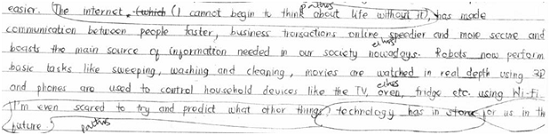 easier. The internet, (which (I cannot begin to think about life without it), has made
pathos
communication between people faster, business transactions online speedier and more secure and
boasts the main source of information needed in our society nowadays. Robots now perform
ethos
basic tasks like sweeping, washing and cleaning, movies are watched in real depth using 3D
and phones are used to control household devices like the TV, oven, fridge etc. using Wi-fi.
ethos
I'm even scared to try and predict what other things technology has in store for us in the
future.
pathos